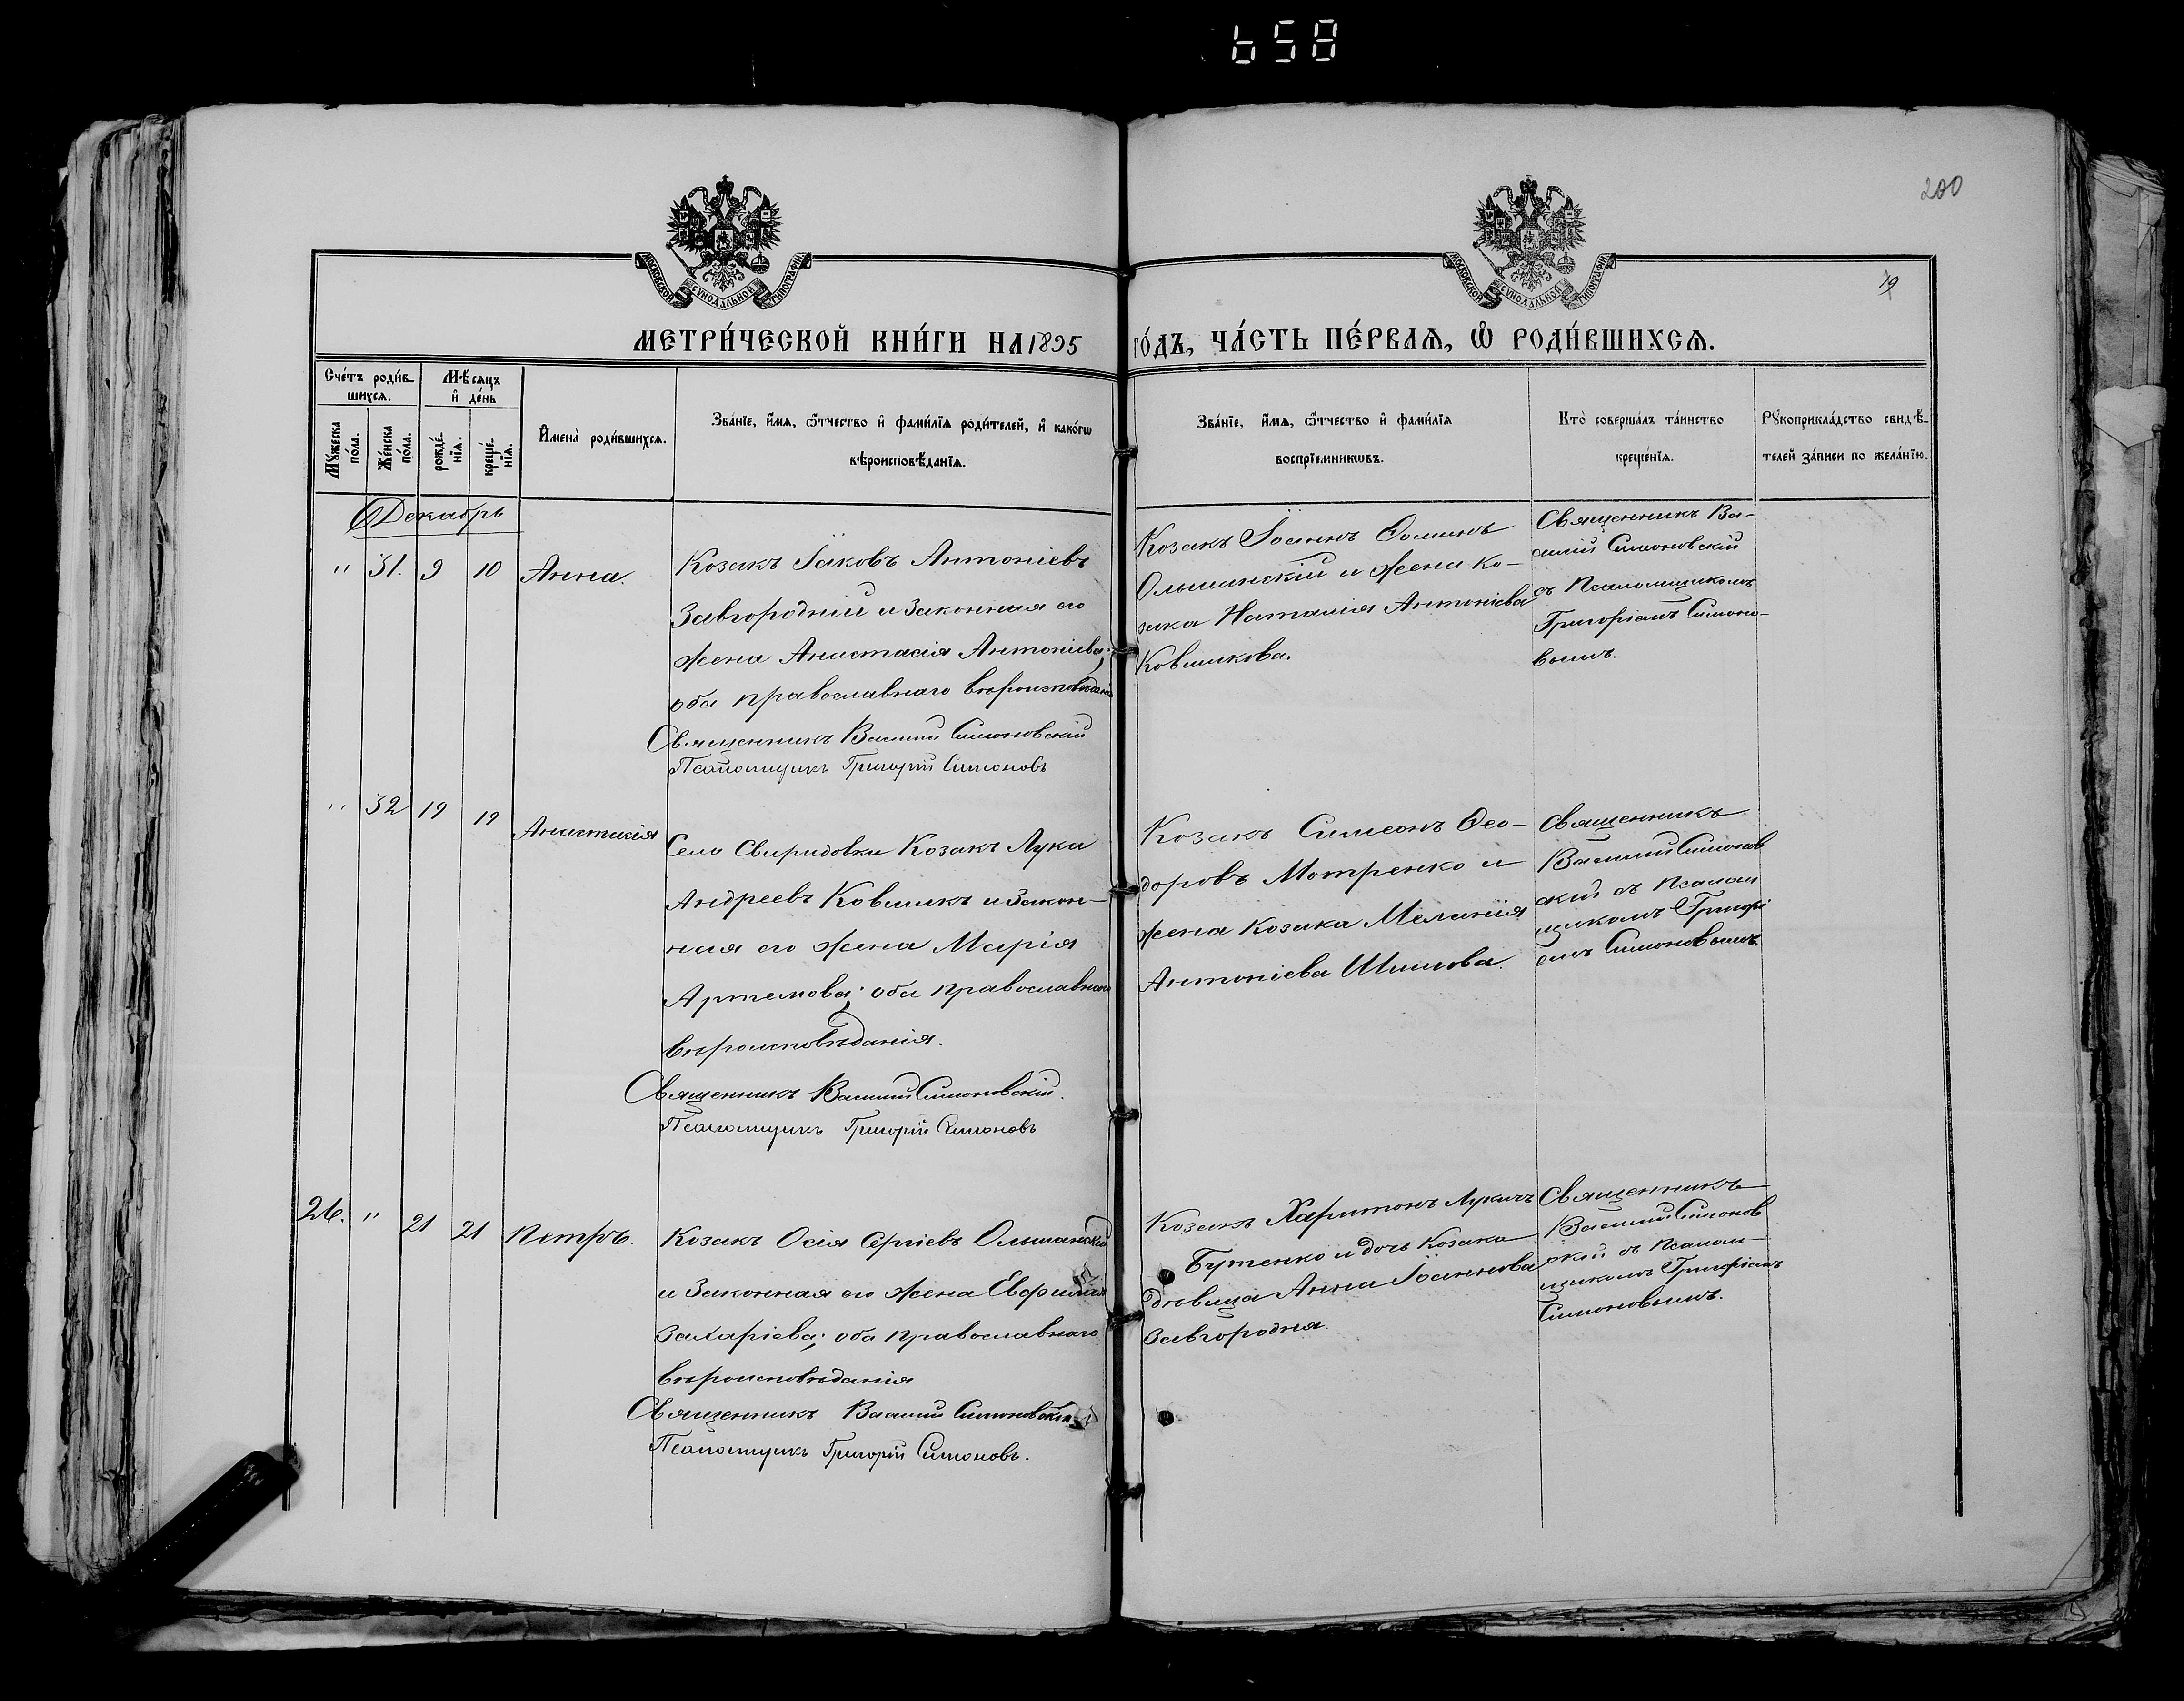 658
200
19
МОСКОВСКОЙ СѴНОДАЛЬНОЙ ТИПОГРАФІИ
МОСКОВСКОЙ СѴНОДАЛЬНОЙ ТИПОГРАФІИ
МЕТРИ́ЧЕСКОЙ КНИ́ГИ НА 1895 ГО́ДЪ, ЧА́СТЬ ПЕ́РВАѦ, Ѡ҆ РОДИ́ВШИХСѦ.
Сче́тъ роди́в-
шихсѧ.
Мꙋ́жеска по́ла.
Же́нска по́ла.
Мѣ́сѧцъ
и҆ де́нь
рожде́-
нїѧ.
креще́-
нїѧ.
И҆мена̀ роди́вшихсѧ.
Зва́нїе, и҆́мѧ, ѻ҆́тчество и҆ фами́лїѧ роди́телей, и҆ како́гѡ
вѣроисповѣ́данїѧ.
Зва́нїе, и҆́мѧ, ѻ҆́тчество и҆ фами́лїѧ
воспрїе́мникѡвъ.
Кто̀ соверша́лъ та́инство
креще́нїѧ.
Рꙋкоприкла́дство свидѣ́-
телей за́писи по жела́нїю.
Декабрь
" 31. 9 10 Анна.
Козакъ Іаковъ Антоніевъ
Завгородній и законная его
жена Анастасія Антоніева;
оба православнаго вѣроисповѣданія
Священникъ Василій Симоновскій
Псаломщикъ Григорій Симоновъ
Козакъ Іоаннъ Ѳоминъ
Ольшанскій и жена ко-
зака Наталія Антоніева
Ковшикова.
Священникъ Ва-
силій Симоновскій
съ Псаломщикомъ
Григоріемъ Симоно-
вымъ.
" 32 19 19 Анастасія
Села Свиридовки Козакъ Лука
Андреевъ Ковшикъ и закон-
ная его жена Марія
Артемова; оба православнаго
вѣроисповѣданія.
Священникъ Василій Симоновскій.
Псаломщикъ Григорій Симоновъ
Козакъ Симеонъ Ѳео-
доровъ Мотренко и
жена Козака Меланія
Антоніева
Священникъ
Василій Симонов
скій съ Псалом
щикомъ Григорі
емъ Симоновымъ.
26. " 21 21 Петръ.
Козакъ Осія Сергіевъ Ольшанскій
и Законная его жена Евфимія
Захаріева; оба православнаго
вѣроисповѣданія
Священникъ Василій Симоновскій
Псаломщикъ Григорій Симоновъ.
Козакъ Харитонъ Лукичъ
Бутенко и дочь Козака
дѣвица Анна Іоаннова
Завгородня.
Священникъ
Василій Симонов
скій съ Псалом-
щикомъ Григоріемъ
Симоновымъ.